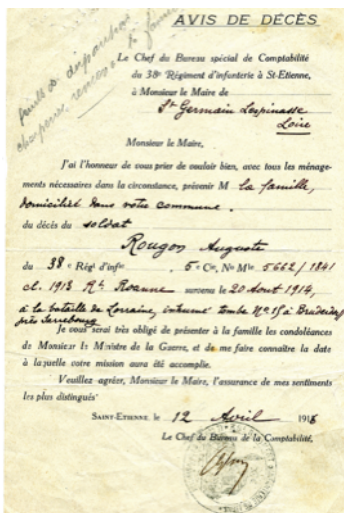 AVIS DE DÉCÈS
Le Chef du Bureau spécial de Comptabilité
du 38e Régiment d'infanterie à St-Etienne,
à Monsieur le Maire de
St Germain Lespinasse
Loire
Monsieur le Maire,
J'ai l'honneur de vous prier de vouloir bien, avec tous les ménage-
ments nécessaires dans la circonstance, prévenir M la famille,
domiciliée dans votre commune.
du décès du soldat
Rougon Auguste
du 38e Régt d'infie 5e Cie, No Mle 5662/1841
cl. 1913 Rt Roanne survenu le 20 Aout 1914,
à la bataille de Lorraine, inhumé tombe No 15 à
près Sarrebourg
Je vous serai très obligé de présenter à la famille les condoléances
de Monsieur le Ministre de la Guerre, et de me faire connaître la date
à laquelle votre mission aura été accomplie.
Veuillez agréer, Monsieur le Maire, l'assurance de mes sentiments
les plus distingués
SAINT-ETIENNE, le 12 Avril 191
Le Chef du Bureau de la Comptabilité,